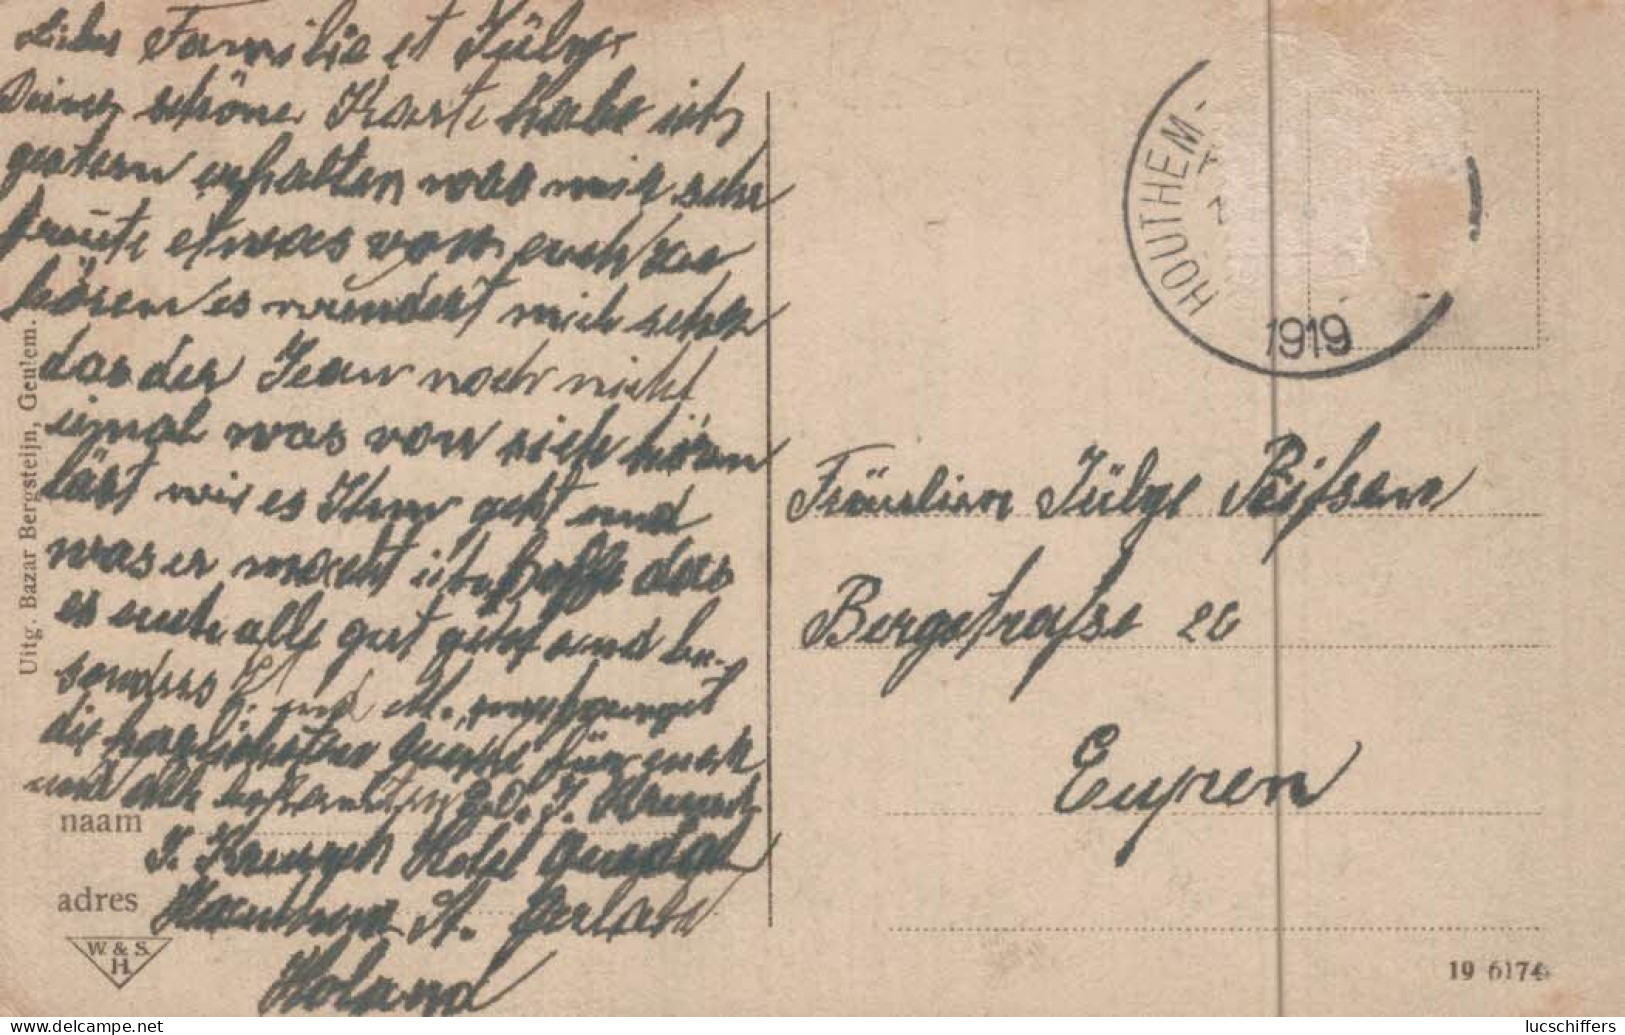 Liebe Familie et Jülye
Deine schöne Karte habe ich
gestern erhalten was mich sehr
freute etwas von euch zu
hören es wundert mich sehr
das der Jean noch nicht
einmal was von sich hören
läst wie es Ihm geht und
was er macht ich hoffe das
es euch alle gut geht und be-
sonders und M.
die herzlichsten Grüsse für euch
und alle bekannten J.
J. Hotel
St. Gerlach
Holand
Uitg. Bazar Bergsteijn, Geulem.
naam
adres
W. & S.
H.
HOUTHEM-
1919
Fräulein Jülye
Bergstrasse 26
Eupen
19 6174
lucschiffers